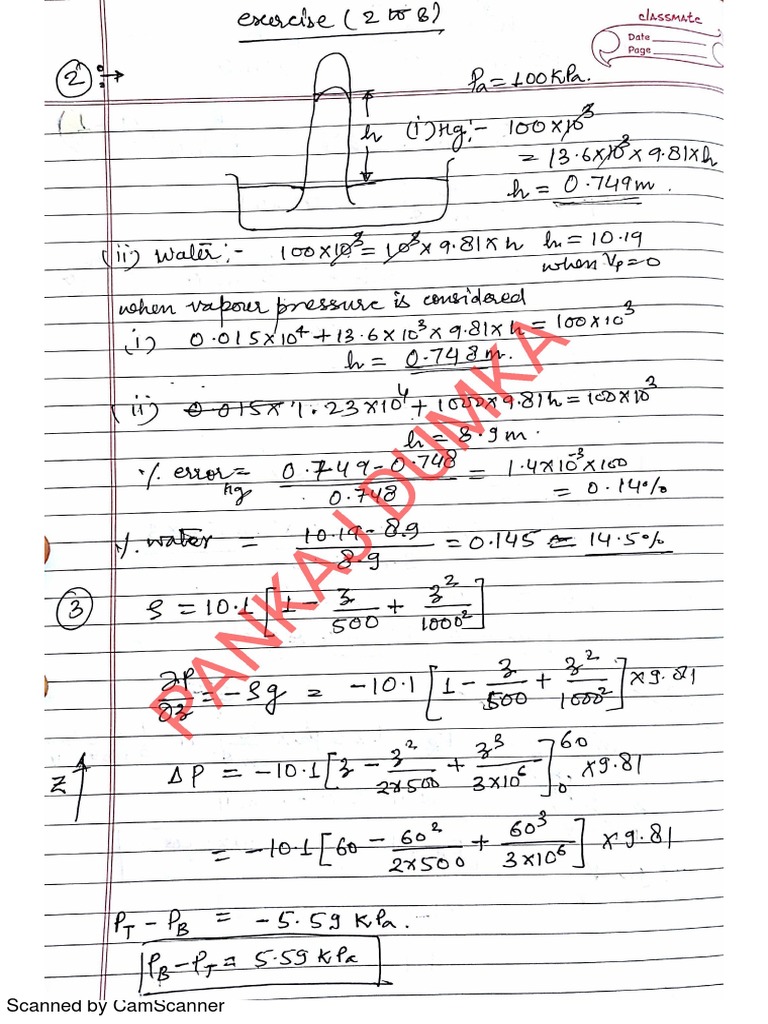 exercise (2 to 8)
classmate
Date
Page
2 :→
Pa = 100 KPa.
h (i) Hg:- 100×10³
= 13.6×10³×9.81×h
h = 0.749m.
(ii) water:- 100×10³ = 10³×9.81×h h = 10.19
when Vp=0
when vapour pressure is considered
(i) 0.015×10⁴+13.6×10³×9.81×h = 100×10³
h = 0.748m.
(ii) 0.015× 1.23×10⁴ + 1000×9.81h = 100×10³
h = 8.9m.
% error Hg = (0.749-0.748)/0.748 = 1.4×10⁻³×100
= 0.14%
% water = (10.19-8.9)/8.9 = 0.145 = 14.5%
3 ρ = 10.1[1 - z/500 + z²/1000²]
∂P/∂z = -ρg = -10.1[1 - z/500 + z²/1000²]×9.81
z↑ ΔP = -10.1[z - z²/(2×500) + z³/(3×10⁶)]₀⁶⁰ ×9.81
= -10.1[60 - 60²/(2×500) + 60³/(3×10⁶)] ×9.81
P_T - P_B = -5.59 KPa.
P_B - P_T = 5.59 KPa
PANKAJ DUMKA
Scanned by CamScanner